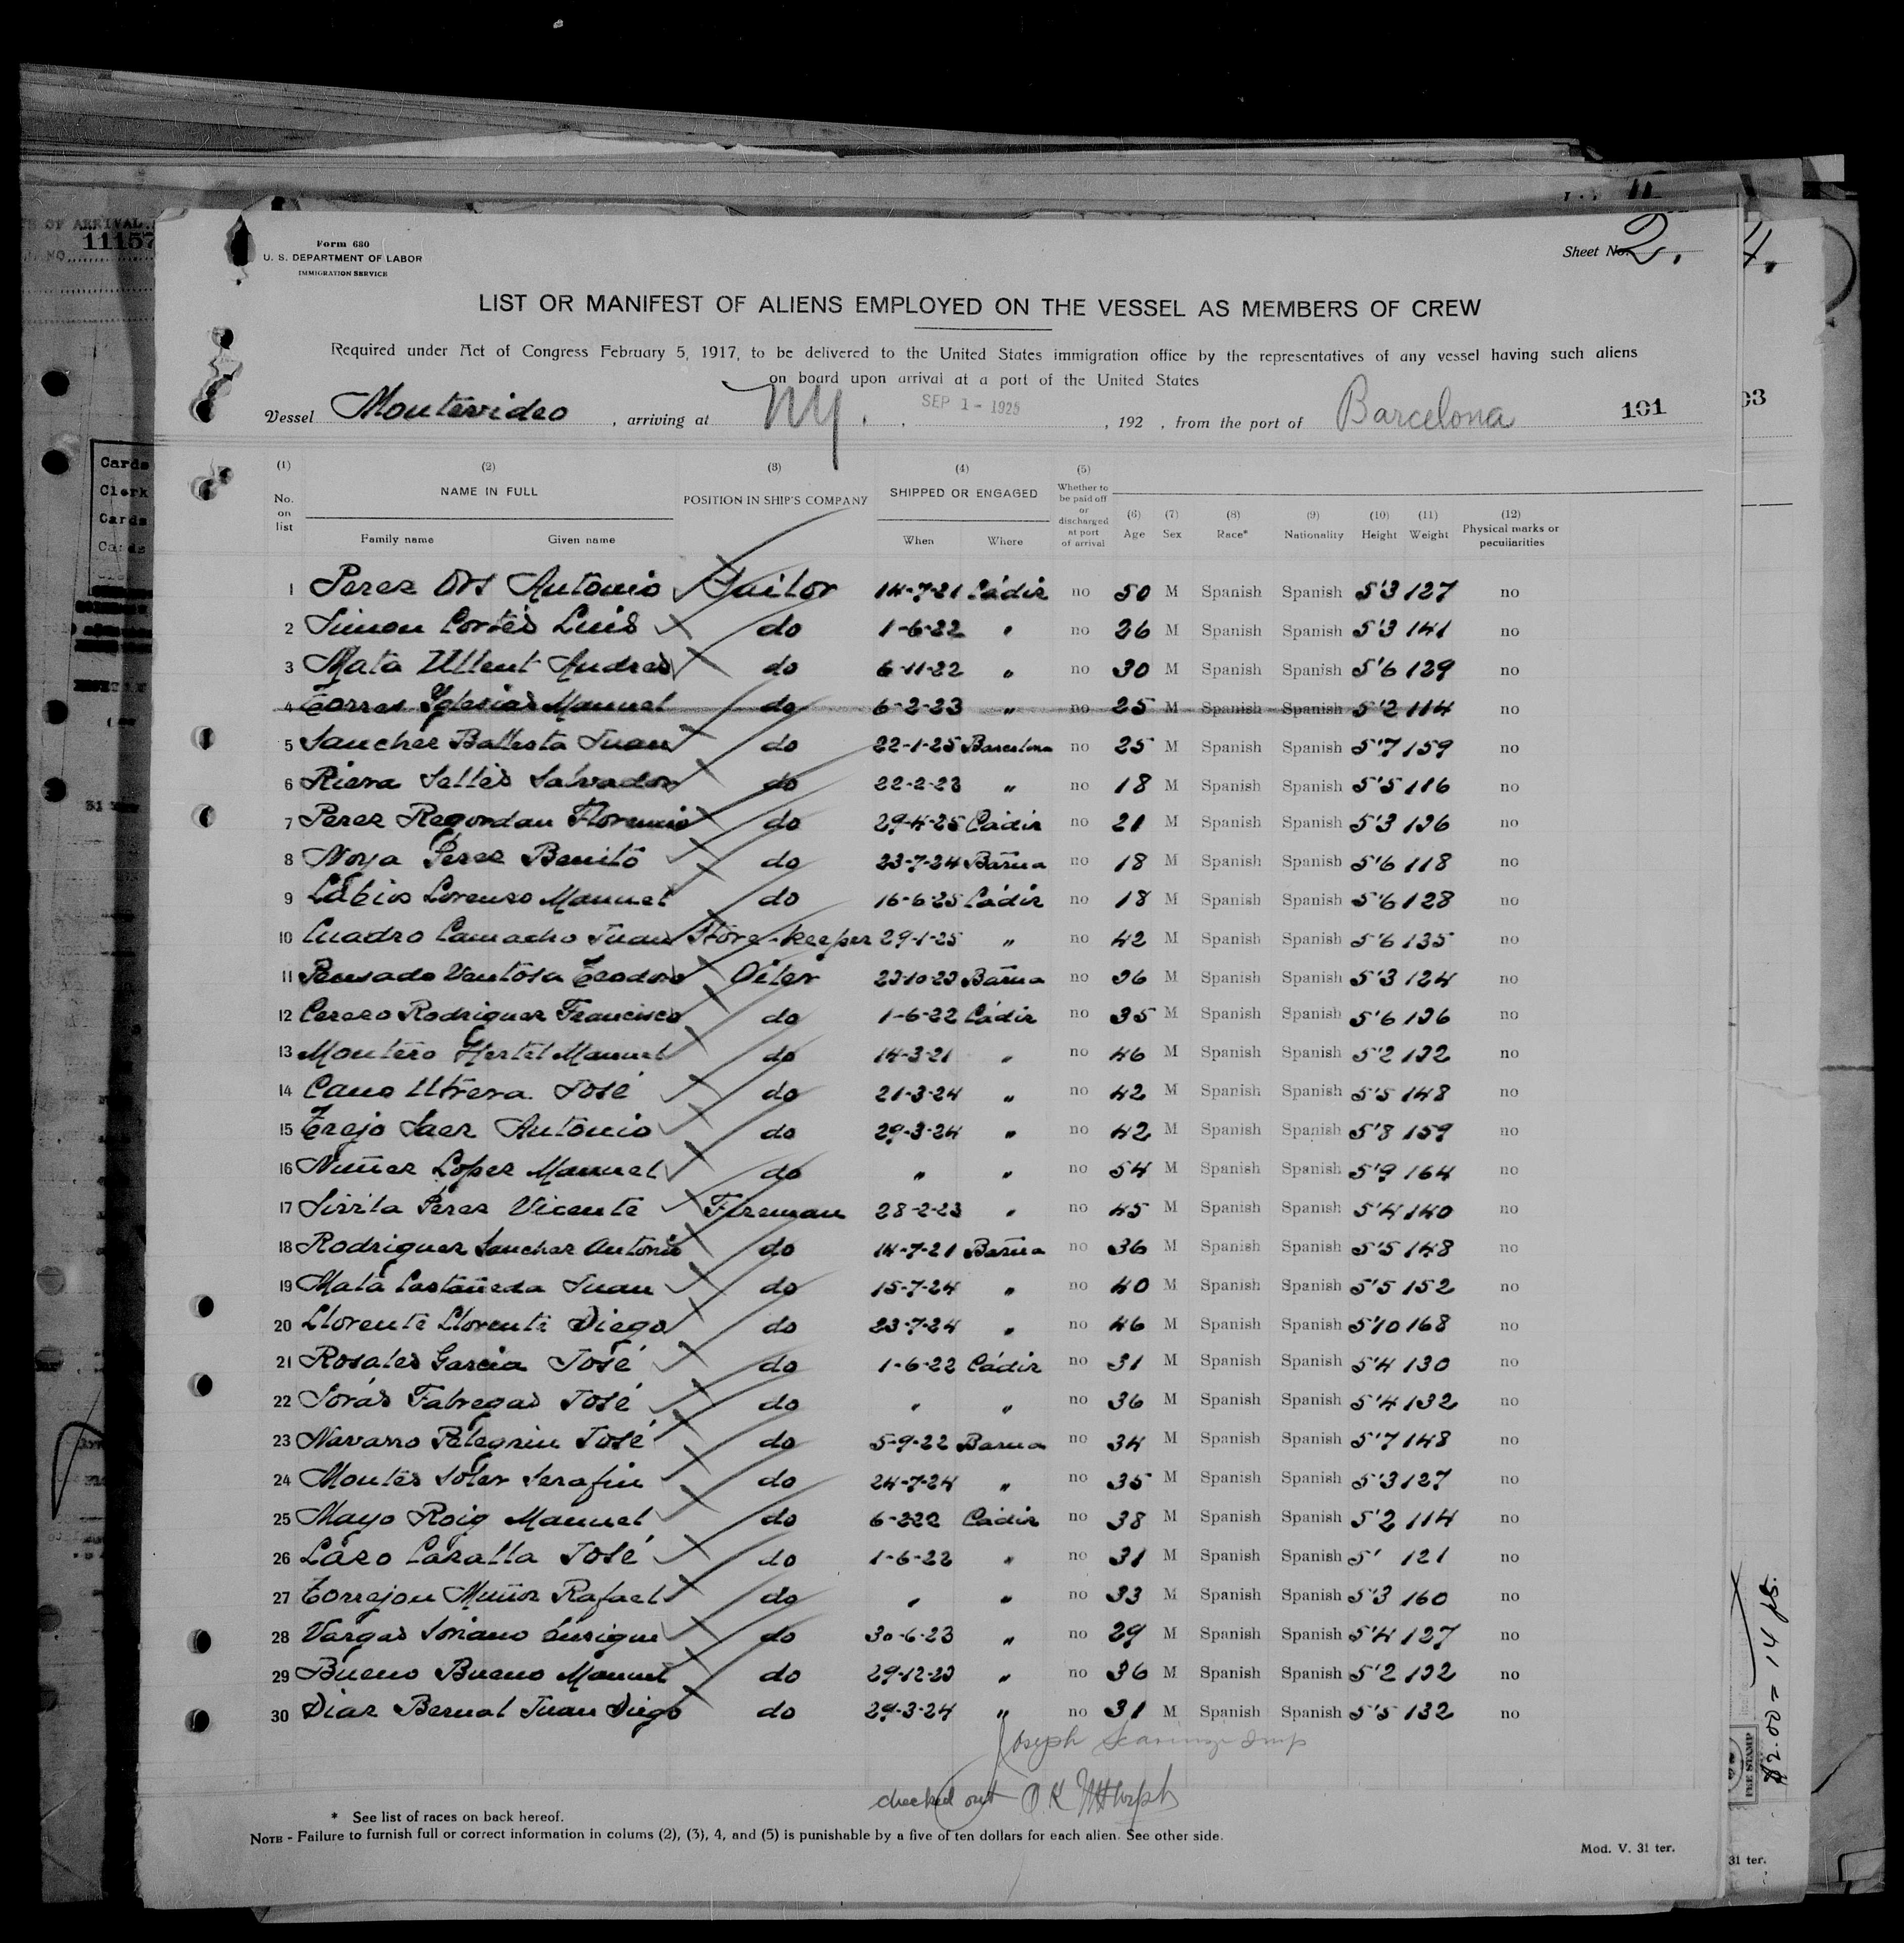 Form 680
U. S. DEPARTMENT OF LABOR
IMMIGRATION SERVICE
Sheet No. 2.
LIST OR MANIFEST OF ALIENS EMPLOYED ON THE VESSEL AS MEMBERS OF CREW
Required under Act of Congress February 5, 1917, to be delivered to the United States immigration office by the representatives of any vessel having such aliens
on board upon arrival at a port of the United States
Vessel Montevideo , arriving at NY. SEP 1 - 1925 , 192 , from the port of Barcelona 101
(1) No. on list (2) NAME IN FULL Family name Given name (3) POSITION IN SHIP'S COMPANY (4) SHIPPED OR ENGAGED When Where (5) Whether to be paid off or discharged at port of arrival (6) Age (7) Sex (8) Race* (9) Nationality (10) Height (11) Weight (12) Physical marks or peculiarities
1 Perez Ors Antonio Sailor 14-7-21 Cádiz no 50 M Spanish Spanish 5'3 127 no
2 Simon Cortés Luis do 1-6-22 " no 26 M Spanish Spanish 5'3 141 no
3 Mata Ullent Andres do 6-11-22 " no 30 M Spanish Spanish 5'6 129 no
4 Torres Yglesias Manuel do 6-2-23 " no 25 M Spanish Spanish 5'2 114 no
5 Sanchez Ballesta Juan do 22-1-25 Barcelona no 25 M Spanish Spanish 5'7 159 no
6 Riera Sellés Salvador do 22-2-23 " no 18 M Spanish Spanish 5'5 116 no
7 Perez Regordan Florencio do 29-4-25 Cádiz no 21 M Spanish Spanish 5'3 136 no
8 Noya Perez Benito do 23-7-24 Barna no 18 M Spanish Spanish 5'6 118 no
9 Lorenzo Manuel do 16-6-25 Cádiz no 18 M Spanish Spanish 5'6 128 no
10 Cuadro Camacho Juan Store-keeper 29-1-25 " no 42 M Spanish Spanish 5'6 135 no
11 Pensado Ventosa Teodoro Oiler 23-10-23 Barna no 36 M Spanish Spanish 5'3 124 no
12 Cerezo Rodriguez Francisco do 1-6-22 Cádiz no 35 M Spanish Spanish 5'6 136 no
13 Montero Manuel do 14-3-21 " no 46 M Spanish Spanish 5'2 132 no
14 Cano Utrera José do 21-3-24 " no 42 M Spanish Spanish 5'5 148 no
15 Trejo Saez Antonio do 29-3-24 " no 42 M Spanish Spanish 5'8 159 no
16 Nuñez Lopez Manuel do " " no 54 M Spanish Spanish 5'9 164 no
17 Perez Vicente Fireman 28-2-23 " no 45 M Spanish Spanish 5'4 140 no
18 Rodriguez Sanchez Antonio do 14-7-21 Barna no 36 M Spanish Spanish 5'5 148 no
19 Mata Castañeda Juan do 15-7-24 " no 40 M Spanish Spanish 5'5 152 no
20 Llorente Llorente Diego do 23-7-24 " no 46 M Spanish Spanish 5'10 168 no
21 Rosales Garcia José do 1-6-22 Cádiz no 31 M Spanish Spanish 5'4 130 no
22 Fabregas José do " " no 36 M Spanish Spanish 5'4 132 no
23 Navarro Pelegrin José do 5-9-22 Barna no 34 M Spanish Spanish 5'7 148 no
24 Montes Soler Serafin do 24-7-24 " no 35 M Spanish Spanish 5'3 127 no
25 Mayo Roig Manuel do 6-222 Cádiz no 38 M Spanish Spanish 5'2 114 no
26 Lazo Caralla José do 1-6-22 " no 31 M Spanish Spanish 5' 121 no
27 Torrejon Muñoz Rafael do " " no 33 M Spanish Spanish 5'3 160 no
28 Vargas Soriano Enrique do 30-6-23 " no 29 M Spanish Spanish 5'4 127 no
29 Bueno Bueno Manuel do 29-12-23 " no 36 M Spanish Spanish 5'2 132 no
30 Diaz Bernal Juan Diego do 29-3-24 " no 31 M Spanish Spanish 5'5 132 no
Joseph
checked out O.K.
* See list of races on back hereof.
NOTE - Failure to furnish full or correct information in colums (2), (3), 4, and (5) is punishable by a five of ten dollars for each alien. See other side.
Mod. V. 31 ter.
OF ARRIVAL
NO. 11157
Cards
Clerk
Cards
Cards
4.
03
$2.00 = 14 ps.
FEE STAMP
31 ter.